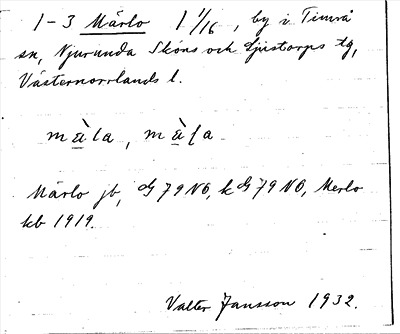 1-3 Märlo 1 1/16, by i Timrå
sn, Njurunda Sköns och Ljustorps tg,
Västernorrlands l.
màla, màla
Märlo jb, G 79 NO, k G 79 NO, Merlo
kb 1919.
Valter Jansson 1932.